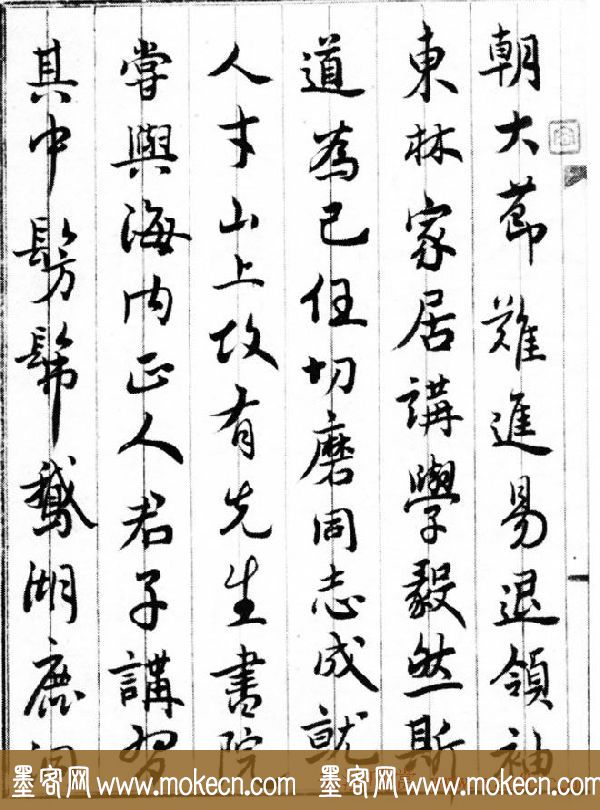 朝大節難進易退領袖
東林家居講學毅然斯
道為己任切磨同志成就
人才山上故有先生書院
嘗與海内正人君子講習
其中髣髴鵝湖鹿洞
墨客网 www.mokecn.com 墨客网 www.mokecn.com